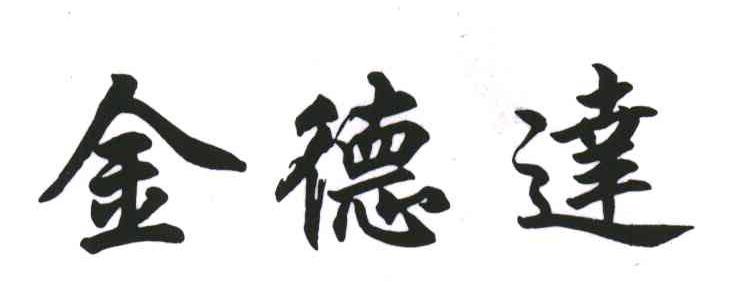 金德達